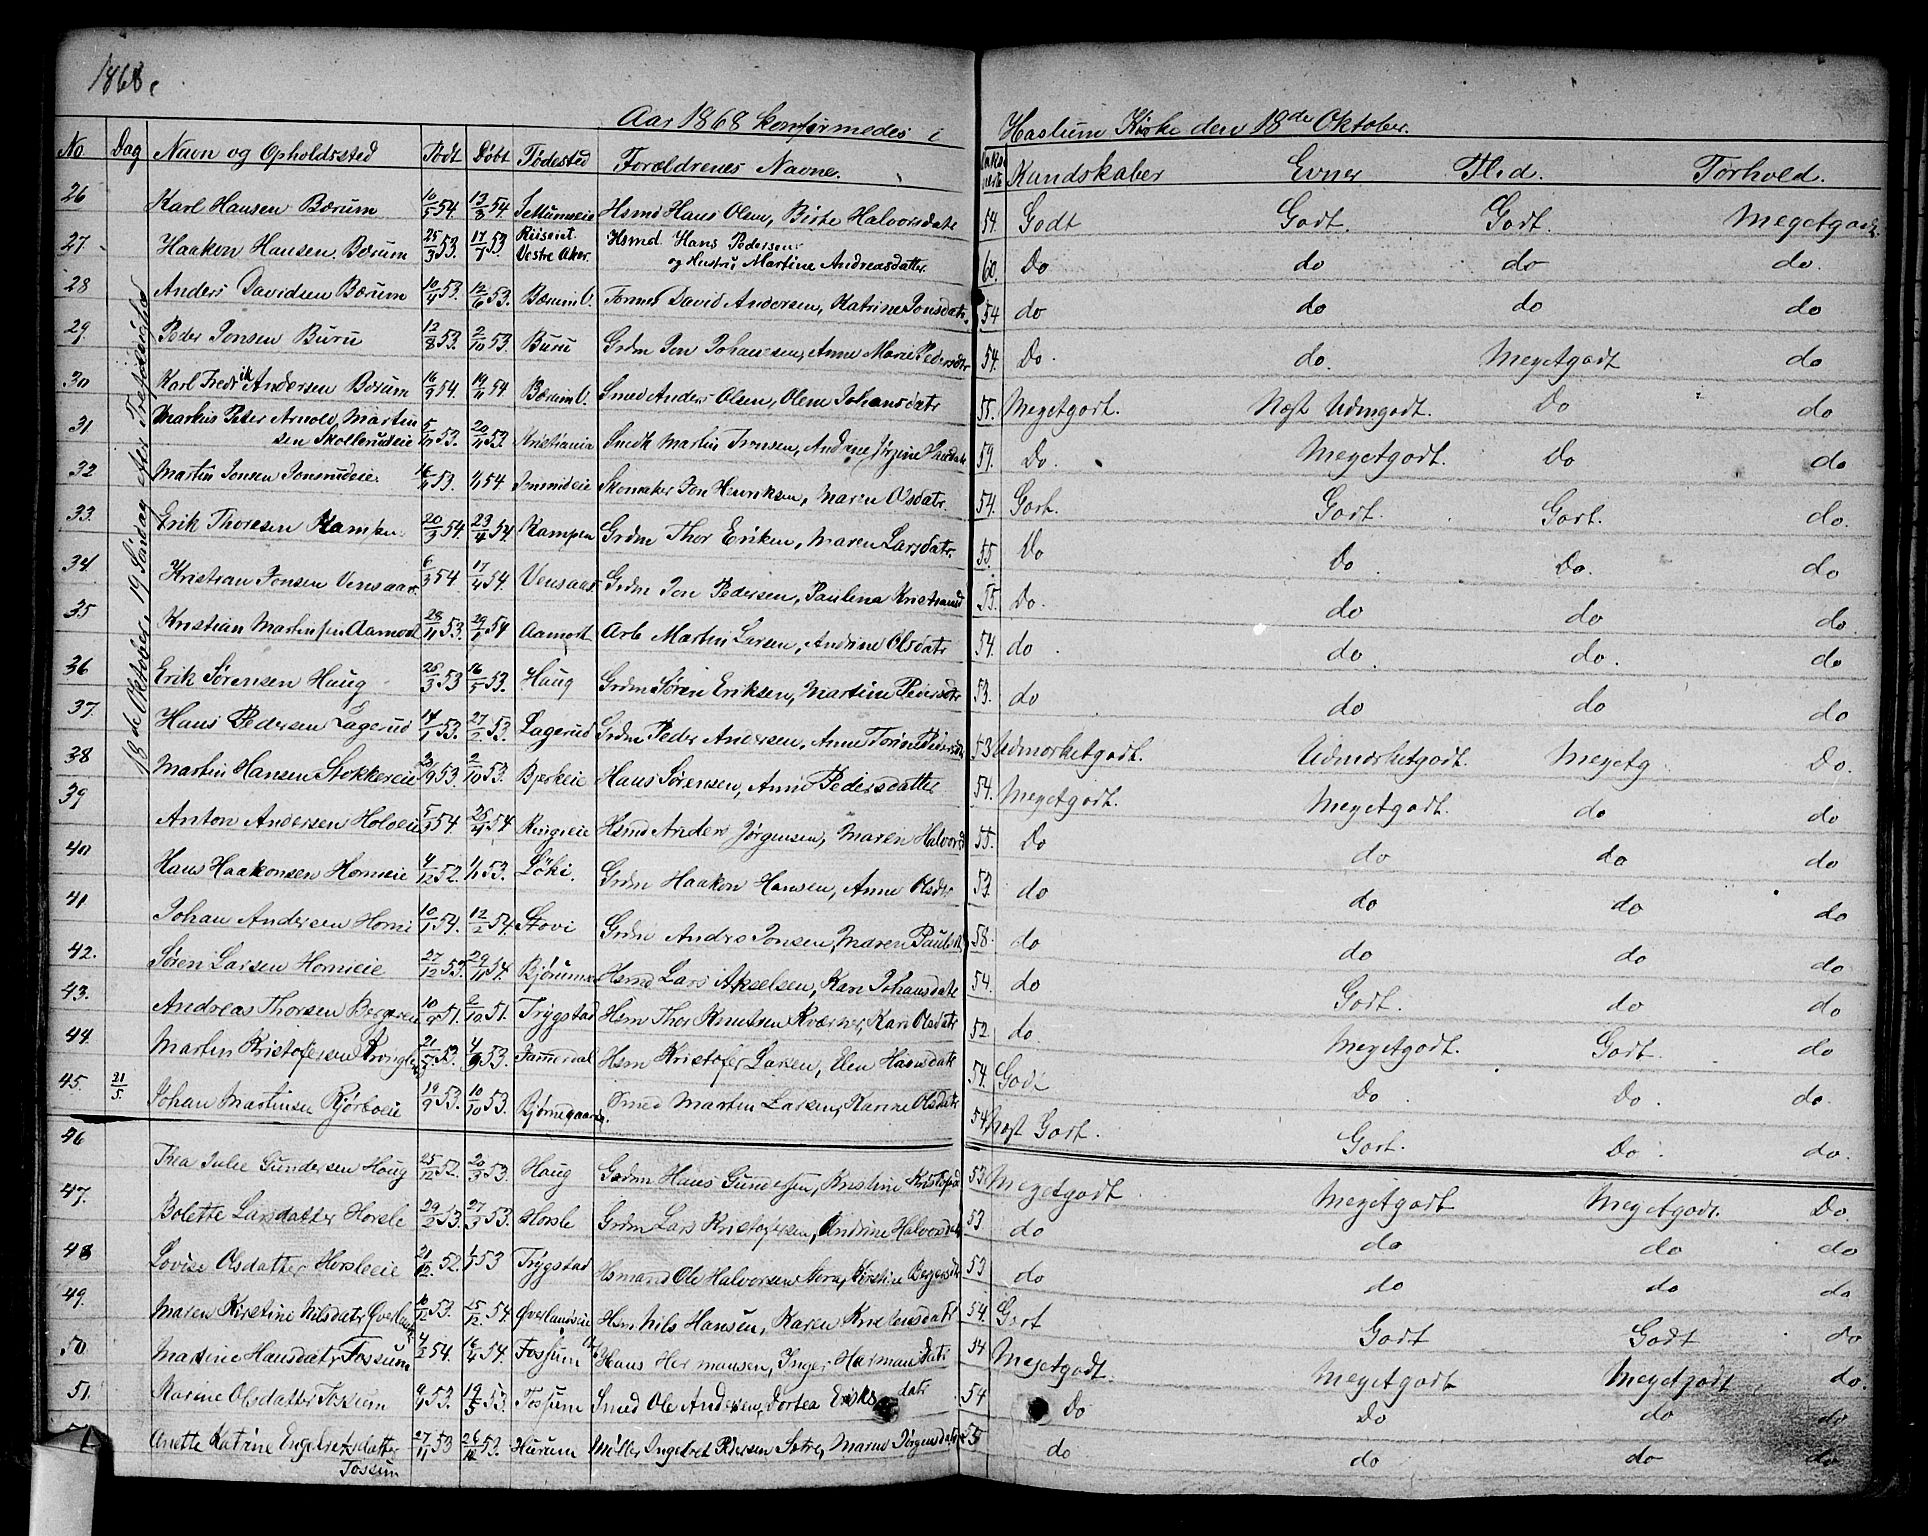 1868.
Aar 1868 konfirmedes i Haslum Kirke den 18de Oktober.
No Dag Navn og Opholdssted Født Døbt Fødested Forældrenes Navne. Kundskaber Evner Flid. Forhold.
18de Oktober, 19 Søndag efter
26 Karl Hansen Bærum 10/5 54. 13/8 54 Hsmd Hans Olen, Birte Halvorsdatr 54. Godt Godt. Godt. Megetgodt.
27 Haaken Hansen Bærum 25/3 53. 17/7 53 Riiseiet Vestre Aker. Hsmd. Hans Pedersen og Hustru Martine Andreasdatter. 60. Do do do do.
28 Anders Davidsen Bærum 10/4 53. 12/6 53. Bærum V. David Andersen, Katrine Jonsdatr. 54 do do do do
29. Peder Jonsen Buru 12/8 53. 2/10 53. Buru Grdm Jon Johansen, Anne Marie Pedersdtr 54. Do. do. Megetgodt do
30 Karl Fredrik Andersen Bærum 16/9 54. 19/11 54 Bærum V. Smed Anders Olsen, Olene Johansdatr 55. Megetgodt. Næst Udmgodt. Do do
31 Markus Peter Arnold Martinsen Skollerudeie 5/10 53. 20/11 53. Kristiania Smedk Martin Jensen, Andrine Jørgine Hansdatr 59. Do. Megetgodt. Do do
32 Martin Jonsen Jonsrudeie. 16/11 53. 1/1 54 Jonsrudeie Skomaker Jon Henriksen, Maren Olsdatr. 54. Godt. Godt. Godt. do.
33. Erik Thoresen Kampen. 20/3 54. 23/4 54. Kampen Grdm Thor Eriksen, Maren Larsdatr. 55 Do Do. Do. do
34. Kristian Jonsen Vensaas. 6/3 54 17/4 54. Vensaas. Grdm Jon Pedersen, Paulena Kristiansd 55. Do. do do do.
35 Kristian Martinsen Aamodt 28/11 53. 29/1 54 Aamodt Arb Martin Larsen, Andrine Olsdatr 54. do. do. do. do
36 Erik Sørensen Haug 25/3 53 16/5 53. Haug Grdm Søren Eriksen, Martine Pedersdtr 53. do do do do
37. Hans Pedersen Lagerud 14/1 53. 27/2 53. Lagerud Grdm Peder Andersen, Anne 53 Udmærketgodt. Udmærketgodt. Megetg Do.
38 Martin Hansen Stokkereie 2/9 53. 2/10 53. Bjerkeie Hans Sørensen, Anne Pedersdatter 54. Megetgodt. Megetgodt. do do
39 Anton Andersen Holoeie 5/3 54 25/4 54 Ringieie Hsmd Anders Jørgensen, Maren Halvorsd 55. Do do do do
40 Hans Haakonsen Horneie 4/12 52. 1/1 53. Løke. Grdm Haakon Hansen, Anne Olsdtr 53 do do do do
41. Johan Andersen Horni 10/1 54. 12/2 54. Stovi Grdm Anders Jonsen, Maren Paulsd 58. do do do do
42. Søren Larsen Hornieie 27/12 53. 29/11 54. Bjørum Hsmd Lars Akselsen, Kari Johansdatr 54. do Godt. do do
43. Andreas Thorsen Bergereie 10/9 51. 9/10 51. Trygstad Hsm Thor Knutsen Kværner, Kari Olsdatr 52. do. Megetgodt. Godt. do
44. Martin Kristofersen 21/7 53. 4/9 53. Jammerdal Hsm Kristofer Larsen, Elen Hansdatr 54. Godt Do. Do. do.
45. 21/5. Johan Martinsen Rjørboeie 19/9 53. 10/10 53. Bjørnegaarden. Smed Martin Larsen, Karine Olsdatr. 54 Næst Godt. Godt. Do. do
46 Thea Julie Gundersen Haug 25/12 52. 20/3 53. Haug Gadm Hans Gundersen, Kristine 53. Megetgodt. Megetgodt Megetgodt. Do.
47. Bolette Larsdatter Horsle 29/2 53. 27/3 53. Horsle Grdm Lars Kristofersen, Andrine Halvorsdatr 53 do do do do
48 Lovise Olsdatter Horsleeie 21/12. 52. 1/5 53 Trygstad Hsmand Ole Halvorsen, Kirstine 53 do do do do
49. Maren Kirstine Nilsdatr Øverland 10/12 53. 25/12 54. Øverlandseie Hsm Nils Hansen, Karen Knutensdatr 54. Godt Godt Godt do
50 Martine Hansdatr, Fossum 4/2 54. 16/4 54. Fossum Hans Hermansen, Inger Harmansdatr 54 Megetgodt. Megetgodt Megetgodt do.
51. Karine Olsdatter Fossum 9/1 53. 19/5 53. Fossum Smed Ole Andersen, Dortea Eriksdatr 54 Do Do do do
Anette Katrine Engelretsdatter Fossum 27/11 53 26/12 53. Hurum Møller Ingebret Pedersen Sætre, Maren Jørgensdatr 55 do do do do